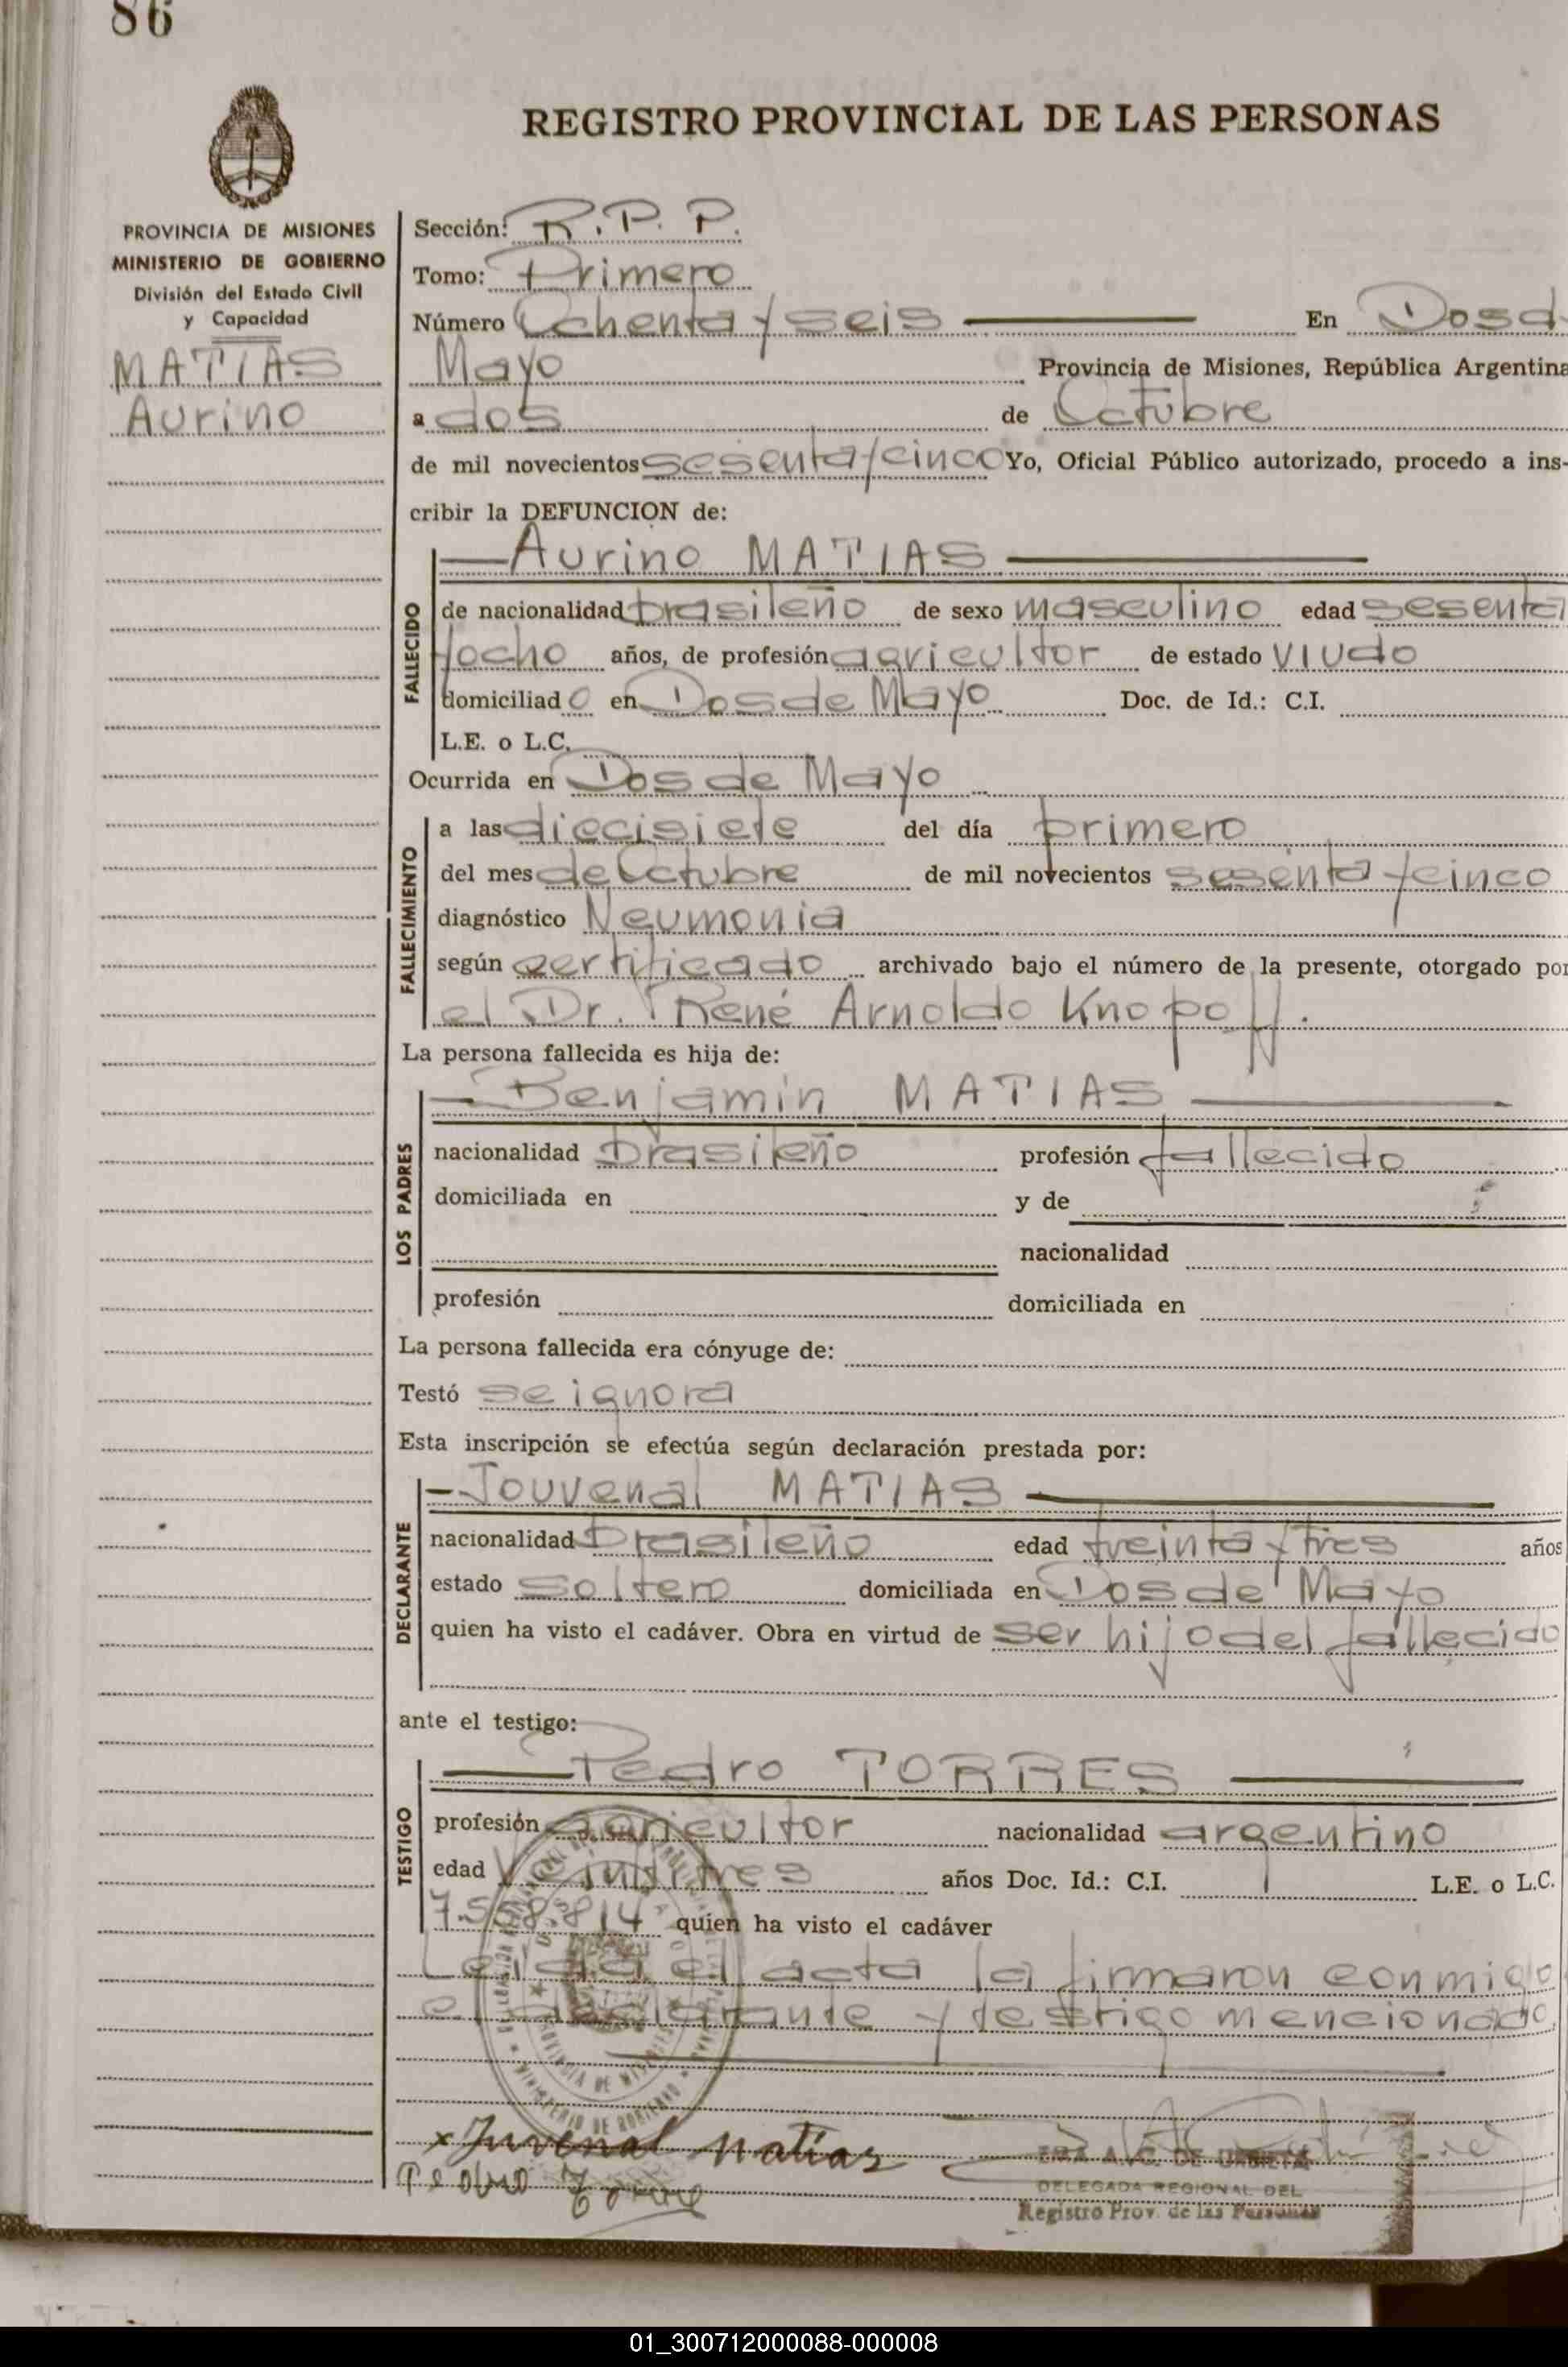 86
REGISTRO PROVINCIAL DE LAS PERSONAS
PROVINCIA DE MISIONES
MINISTERIO DE GOBIERNO
División del Estado Civil
y Capacidad
MATIAS
Aurino
Sección: R. P. P.
Tomo: Primero
Número Ochenta y seis En Dos d
Mayo Provincia de Misiones, República Argentina
a dos de Octubre
de mil novecientos sesenta y cinco Yo, Oficial Público autorizado, procedo a ins-
cribir la DEFUNCION de:
Aurino MATIAS
FALLECIDO
de nacionalidad brasileño de sexo masculino edad sesenta
y ocho años, de profesión agricultor de estado viudo
domiciliad o en Dos de Mayo Doc. de Id.: C.I.
L.E. o L.C.
Ocurrida en Dos de Mayo
FALLECIMIENTO
a las diecisiete del día primero
del mes de Octubre de mil novecientos sesenta y cinco
diagnóstico Neumonia
según certificado archivado bajo el número de la presente, otorgado por
el Dr. René Arnoldo Knopoff.
La persona fallecida es hija de:
LOS PADRES
Benjamin MATIAS
nacionalidad brasileño profesión fallecido
domiciliada en y de
nacionalidad
profesión domiciliada en
La persona fallecida era cónyuge de:
Testó se ignora
Esta inscripción se efectúa según declaración prestada por:
DECLARANTE
Jouvenal MATIAS
nacionalidad brasileño edad treinta y tres años
estado soltero domiciliada en Dos de Mayo
quien ha visto el cadáver. Obra en virtud de ser hijo del fallecido
ante el testigo:
TESTIGO
Pedro TORRES
profesión agricultor nacionalidad argentino
edad veintitres años Doc. Id.: C.I. L.E. o L.C.
7.558.814 quien ha visto el cadáver
Leida el acta la firmaron conmigo
el declarante y testigo mencionado
x Juvenal Matías
Pedro Torre
DELEGADA REGIONAL DEL
Registro Prov. de las Personas
01_300712000088-000008